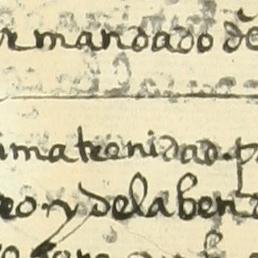 r mandado de
ima trenidad. p
eo. y dela ben